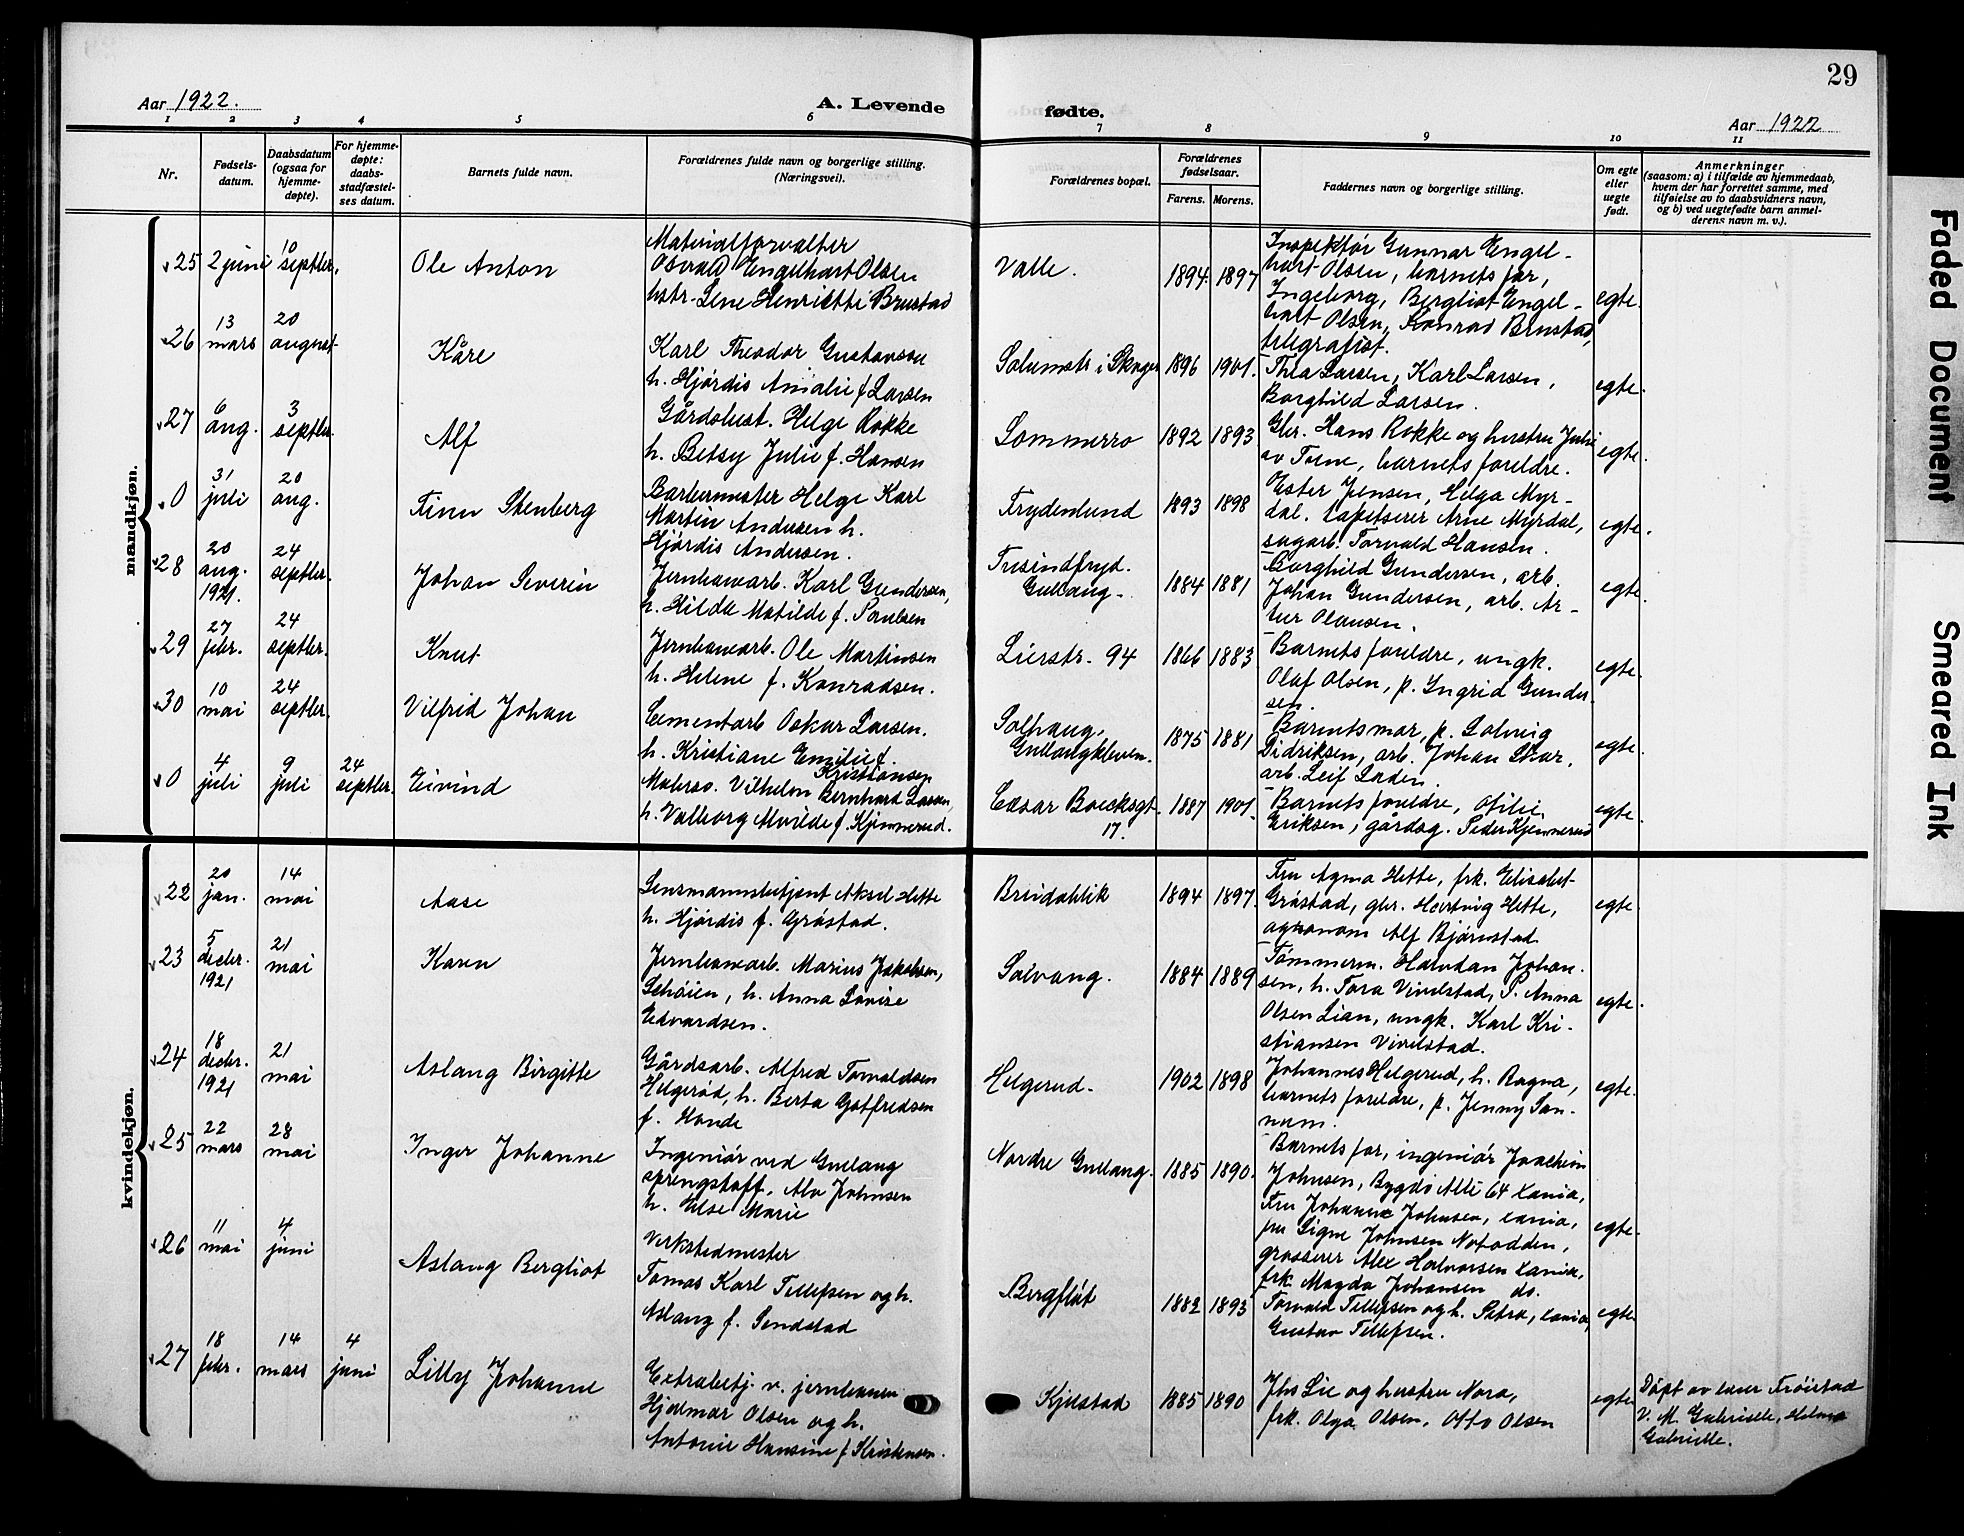 29
Aar 1922.
A. Levende
fødte.
Aar 1922
1 2 3 4 5 6 7 8 9 10 11
Nr.
Fødsels-
datum.
Daabsdatum
(ogsaa for
hjemme-
døpte).
For hjemme-
døpte:
daabs-
stadfæstel-
ses datum.
Barnets fulde navn.
Forældrenes fulde navn og borgerlige stilling.
(Næringsvei).
Forældrenes bopæl.
Forældrenes
fødselsaar.
Farens. Morens.
Faddernes navn og borgerlige stilling.
Om egte
eller
uegte
født.
Anmerkninger
(saasom: a) i tilfælde av hjemmedaab,
hvem der har forrettet samme, med
tilføielse av to daabsvidners navn,
og b) ved uegtefødte barn anmel-
derens navn m. v.).
mandkjøn.
25
2 juni
10
septbr.
Ole Anton
Materialforvalter
Osvald Engelhart Olsen
hstr. Lene Henriette Brustad
Valle.
1894. 1897
Inspektør Gunnar Engel-
hart Olsen, barnets far,
Ingeborg, Bergliot Engel-
hart Olsen, Konrad Brustad,
telegrafist.
egte.
26
13
mars
20
august
Kåre
Karl Theodor Gustavsen
h. Hjördis Amalie f. Larsen
Solumstr. i Skoger
1896 1901.
Thea Larsen, Karl Larsen,
Borghild Larsen.
egte.
27
6
aug.
3
septbr.
Alf
Gårdsbest. Helge Rokke
h. Betsy Julie f. Hansen
Sommerro
1892 1893
Gbr. Hans Rokke og hustru Julie
av Torne, barnets foreldre.
egte.
0
31
juli
20
aug.
Finn Stenberg
Barbermester Helge Karl
Martin Andersen h.
Hjördis Andersen.
Frydenlund
1893 1898
Ester Jensen, Helga Myr-
dal. tapetserer Arne Myrdal,
sagarb. Torvald Hansen.
egte.
28
20
aug.
1921.
24
septbr.
Johan Severin
Jernbanearb. Karl Gundersen,
h. Hilda Matilde f. Paulsen
Tusindfryd.
Gullaug.
1884 1881
Borghild Gundersen, arb.
Johan Gundersen, arb. Ar-
tur Olausen.
egte.
29
27
febr.
24
septbr.
Knut
Jernbanearb. Ole Martinsen
h. Helene f. Konradsen.
Lierstr. 94
1866 1883
Barnets foreldre, ungk.
Olaf Olsen, p. Ingrid Gunder-
sen.
egte.
30
10
mai
24
septbr.
Vilfrid Johan
Cementarb Oskar Larsen.
h. Kristiane Emilie f.
Kristiansen
Solhaug,
Gullaugkleven.
1875 1881
Barnets mor, p. Solveig
Didriksen, arb. Johan Skar,
arb. Leif Laden.
egte.
0
4
juli
9
juli
24
septbr.
Eivind
Malersv. Vilhelm Bernhard Larsen,
h. Valborg Alvilde f. Kjennerud.
Cæsar Boecksgt.
17.
1887 1901.
Barnets foreldre, Otilie
Eriksen, gårdsg. Peder Kjennerud
egte.
kvindekjøn.
22
20
jan.
14
mai
Aase
Lensmannsbetjent Aksel Hette
h. Hjördis f. Gråstad.
Bredablik
1894 1897.
Fru Agma Hette, frk. Elisabet
Gråstad, gbr. Hartvig Hette,
agronom Alf Bjørnstad
egte.
23
5
decbr.
1921
21
mai
Karen
Jernbanearb. Marius Jakobsen,
Schöien, h. Anna Lovise
Edvardsen.
Solvang.
1884 1889
Tömmerm. Halvdan Johan-
sen, h. Tora Vivelstad, P. Anna
Olsen Lian, ungk. Karl Kri-
stiansen Vivelstad.
egte.
24
18
decbr.
1921
21
mai
Aslaug Birgitte
Gårdsarb. Alfred Torvaldsen
Helgerød, h. Berta Gotfredsen
f. Honde
Helgerud.
1902 1898
Johannes Helgerud, h. Ragna,
barnets foreldre, p. Jenny San-
num.
egte.
25
22
mars
28
mai
Inger Johanne
Ingeniör ved Gullaug
sprengstoff. Alv Johnsen
h. Else Marie
Nordre Gullaug.
1885 1890.
Barnets far, ingeniör Joachim
Johnsen, Bygdö Allé 64 Xania,
Fru Johanne Johnsen, Xania,
fru Signe Johnsen Notodden,
grosserer Alex Halvorsen Xania,
frk. Magda Johansen do.
egte.
26
11
mai
4
juni
Aslaug Bergliot
Verkstedmester
Tomas Karl Tellefsen og h.
Aslaug f. Sendstad
Bergfløt
1882 1893
Torvald Tellefsen og h. Petra, Xania,
Gustav Tellefsen.
egte.
27
18
febr.
14
mars
4
juni
Lilly Johanne
Extrabetj. v. jernbanen
Hjalmar Olsen og h.
Antonie Hansine f. Kristensen.
Kjustad
1885 1890
Jhs Lie og hustru Nora,
frk. Olga Olsen, Otto Olsen
egte
Döpt av lærer Fröistad
V. M. Gabrielle, Helma
Gabrielle.
Faded Document
Smeared Ink